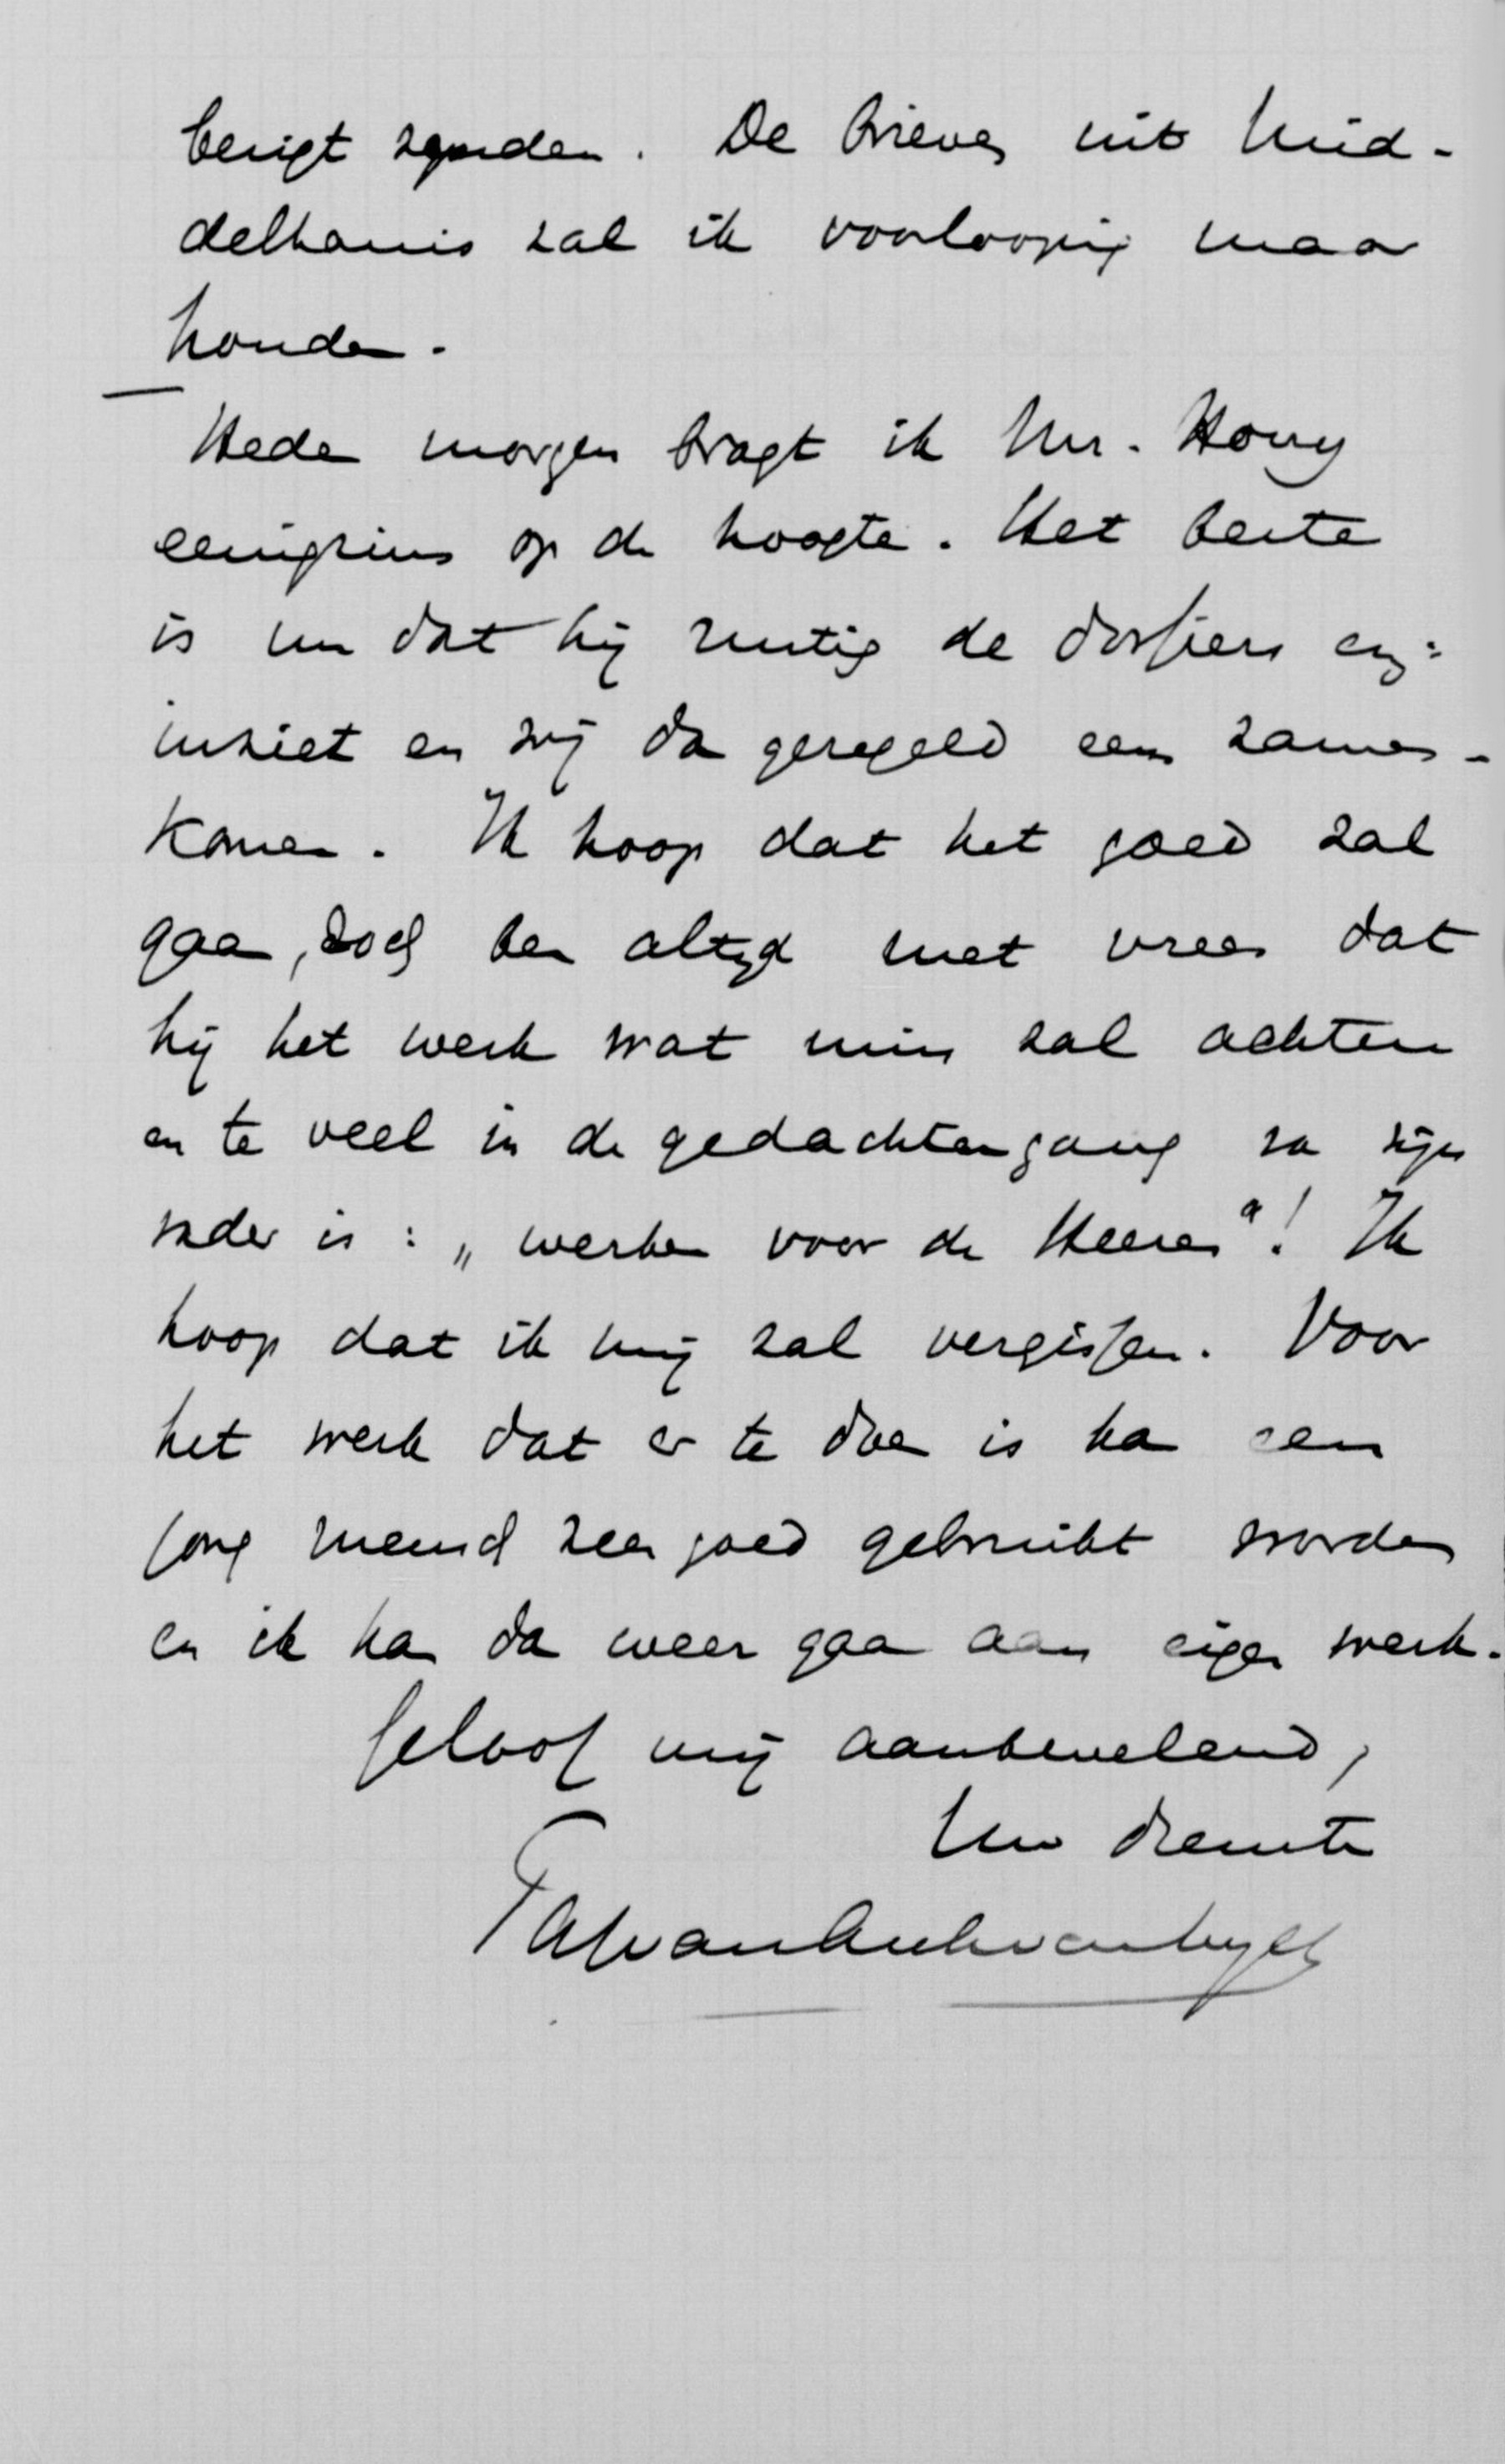 berigt zenden. De brieven uit Mid-
delharnis zal ik voorloopig maar
houden.
Heden morgen bragt ik Mr. Hony
eenigzins op de hoogte. Het beste
is nu dat hij rustig de dossiers enz:
inziet en wij dan geregeld eens zamen-
komen. Ik hoop dat het goed zal
gaan, doch ben altijd met vrees dat
hij het werk wat min zal achten
en te veel in de gedachtengang van zijn
vader is: „werken voor de Heeren"! Ik
hoop dat ik mij zal vergissen. Voor
het werk dat er te doen is kan een
jong mensch zeer goed gebruikt worden
en ik kan dan weer gaan aan eigen werk.
Geloof mij aanbevelend,
Uw dienstw